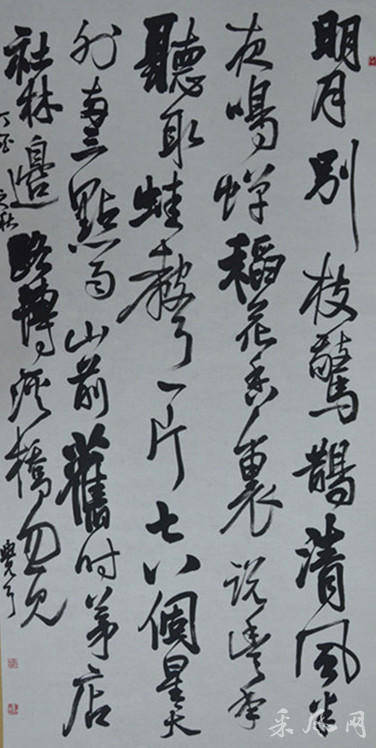 明月別枝驚鵲清風半
夜鳴蟬稻花香裏說豐年
聽取蛙聲一片七八個星天
外兩三點雨山前舊時茅店
社林邊路轉溪橋忽見
采风网